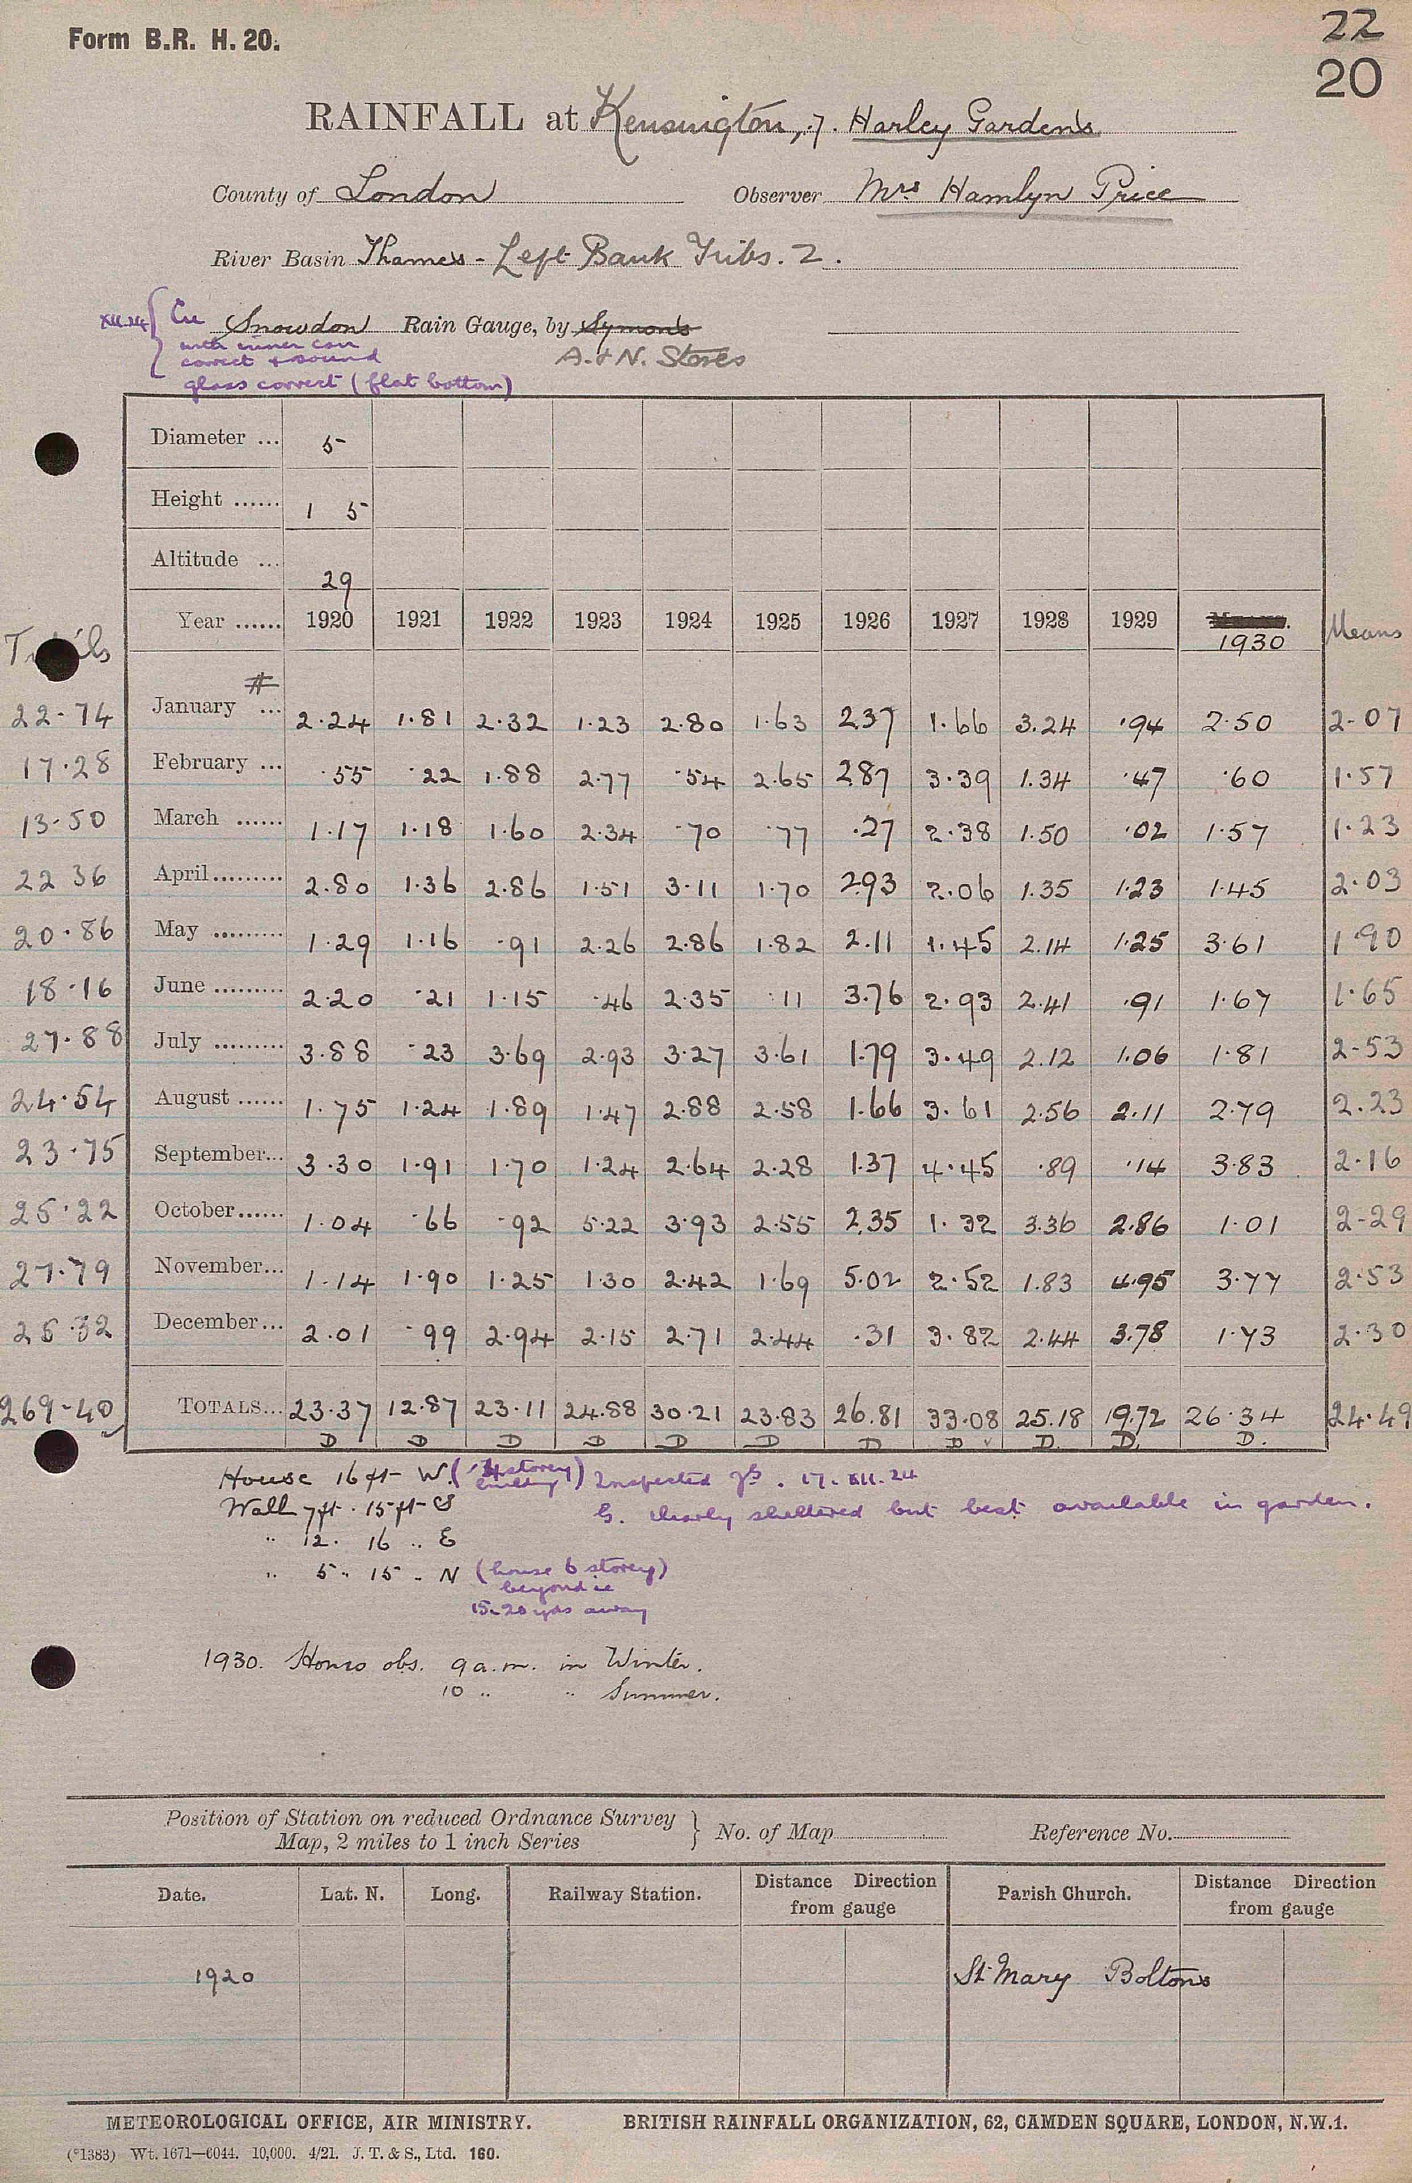 Form B.R. H. 20.
22
20
RAINFALL at Kensington, 7. Harley Gardens
County of London Observer Mrs Hamlyn Price
River Basin Thames - Left Bank Tribs. 2.
XII.24 { Cu Snowdon Rain Gauge, by Symon's
with inner can
correct & sound A. & N. Stores
glass correct (flat bottom)
Diameter ... 5
Height ...... 1 5
Altitude ... 29
Year ...... 1920 1921 1922 1923 1924 1925 1926 1927 1928 1929 1930 Means
Totals
22.74 January ... 2.24 1.81 2.32 1.23 2.80 1.63 2.37 1.66 3.24 .94 2.50 2.07
17.28 February ... .55 .22 1.88 2.77 .54 2.65 2.87 3.39 1.34 .47 .60 1.57
13.50 March ...... 1.17 1.18 1.60 2.34 .70 .77 .27 2.38 1.50 .02 1.57 1.23
22 36 April ......... 2.80 1.36 2.86 1.51 3.11 1.70 2.93 2.06 1.35 1.23 1.45 2.03
20.86 May ......... 1.29 1.16 .91 2.26 2.86 1.82 2.11 1.45 2.14 1.25 3.61 1.90
18.16 June ......... 2.20 .21 1.15 .46 2.35 .11 3.76 2.93 2.41 .91 1.67 1.65
27.88 July ......... 3.88 .23 3.69 2.93 3.27 3.61 1.79 3.49 2.12 1.06 1.81 2.53
24.54 August ...... 1.75 1.24 1.89 1.47 2.88 2.58 1.66 3.61 2.56 2.11 2.79 2.23
23.75 September... 3.30 1.91 1.70 1.24 2.64 2.28 1.37 4.45 .89 .14 3.83 2.16
25.22 October ...... 1.04 .66 .92 5.22 3.93 2.55 2.35 1.32 3.36 2.86 1.01 2.29
27.79 November... 1.14 1.90 1.25 1.30 2.42 1.69 5.02 2.52 1.83 4.95 3.77 2.53
25.32 December... 2.01 .99 2.94 2.15 2.71 2.44 .31 3.82 2.44 3.78 1.73 2.30
269.40 TOTALS... 23.37 12.87 23.11 24.88 30.21 23.83 26.81 33.08 25.18 19.72 26.34 24.49
D D D D D D D D D D D.
House 16 ft W. (4 storey building) Inspected 17.XII.24
Wall 7 ft. 15 ft S G. clearly sheltered but best available in garden.
" 12. 16 .. E
" 5 .. 15 .. N (house 6 storey)
beyond ie
15-20 yds away
1930. Hours obs. 9 a.m. in Winter.
10 " " Summer.
Position of Station on reduced Ordnance Survey
Map, 2 miles to 1 inch Series } No. of Map Reference No.
Date. Lat. N. Long. Railway Station. Distance Direction from gauge Parish Church. Distance Direction from gauge
1920 St Mary Boltons
METEOROLOGICAL OFFICE, AIR MINISTRY. BRITISH RAINFALL ORGANIZATION, 62, CAMDEN SQUARE, LONDON, N.W.1.
(*1383) Wt. 1671—6044. 10,000. 4/21. J. T. & S., Ltd. 160.